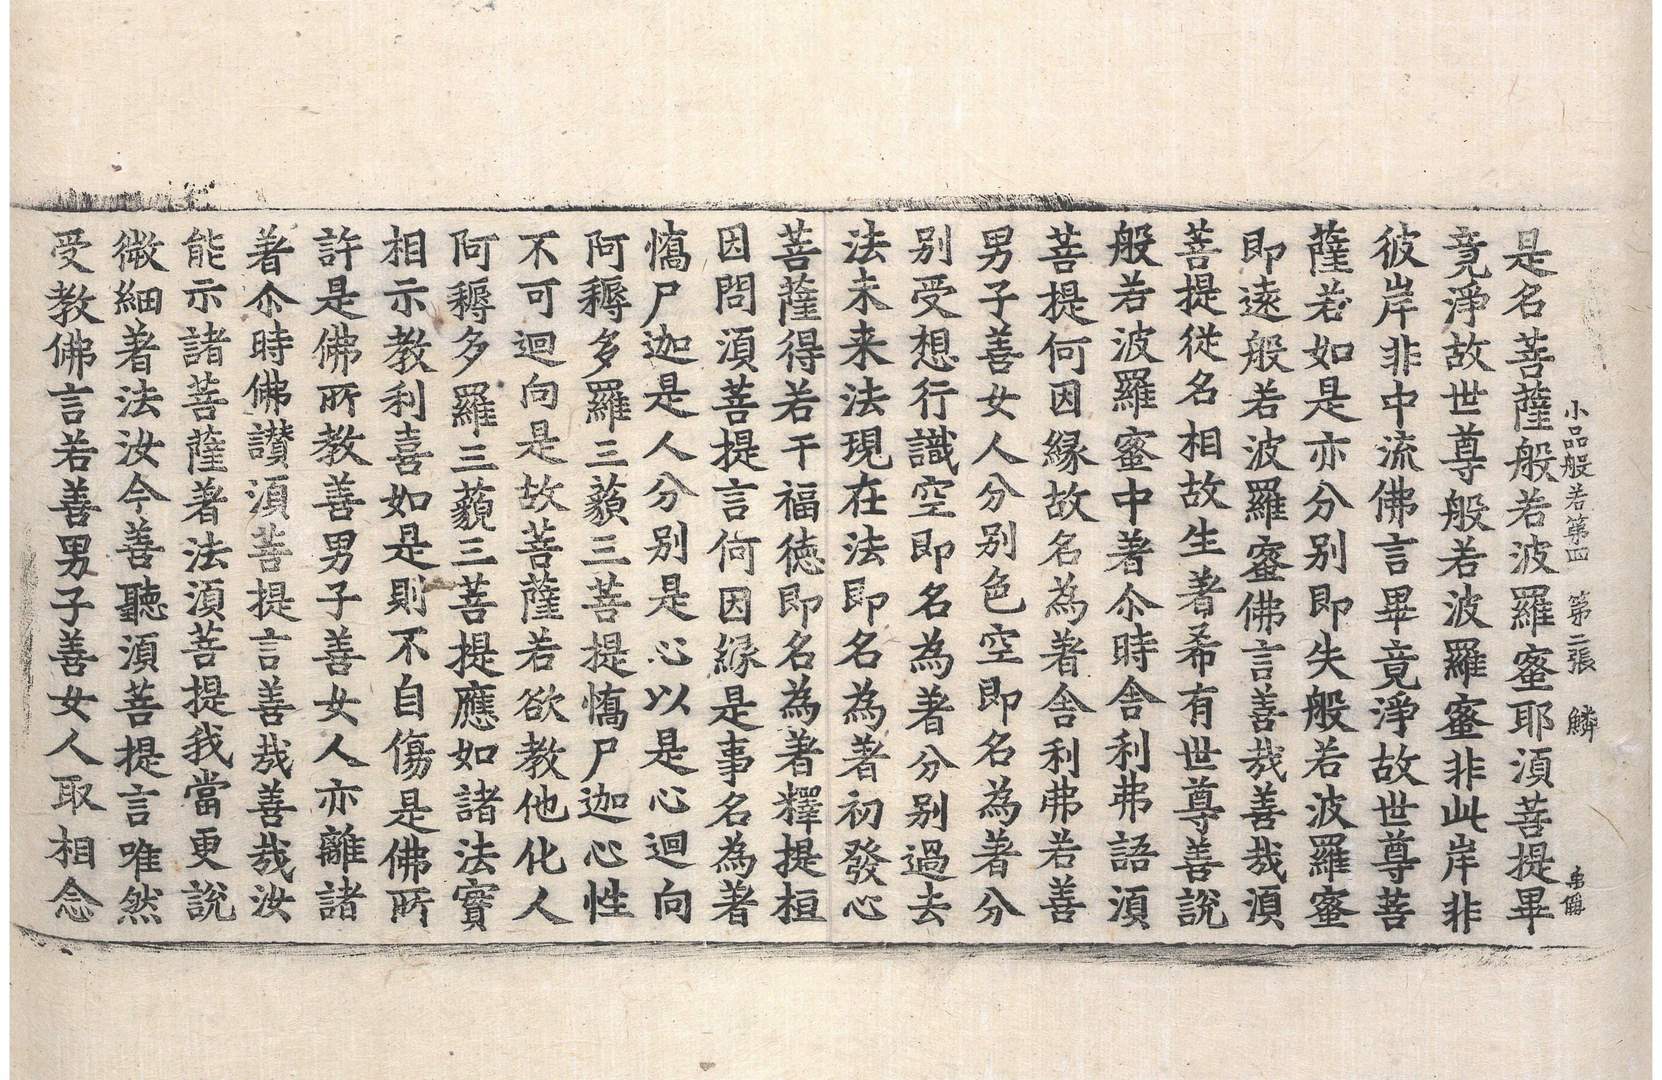 小品般若第四 第二張 鱗
是名菩薩般若波羅蜜耶須菩提畢
竟淨故世尊般若波羅蜜非此岸非
彼岸非中流佛言畢竟淨故世尊菩
薩若如是亦分別即失般若波羅蜜
即遠般若波羅蜜佛言善哉善哉須
菩提從名相故生著希有世尊善說
般若波羅蜜中著尒時舍利弗語須
菩提何因縁故名為著舍利弗若善
男子善女人分別色空即名為著分
別受想行識空即名為著分別過去
法未来法現在法即名為著初發心
菩薩得若干福德即名為著釋提桓
因問須菩提言何因縁是事名為著
憍尸迦是人分別是心以是心迴向
阿耨多羅三藐三菩提憍尸迦心性
不可迴向是故菩薩若欲教他化人
阿耨多羅三藐三菩提應如諸法實
相示教利喜如是則不自傷是佛所
許是佛所教善男子善女人亦離諸
著尒時佛讃須菩提言善哉善哉汝
能示諸菩薩著法須菩提我當更說
微細著法汝今善聽須菩提言唯然
受教佛言若善男子善女人取相念